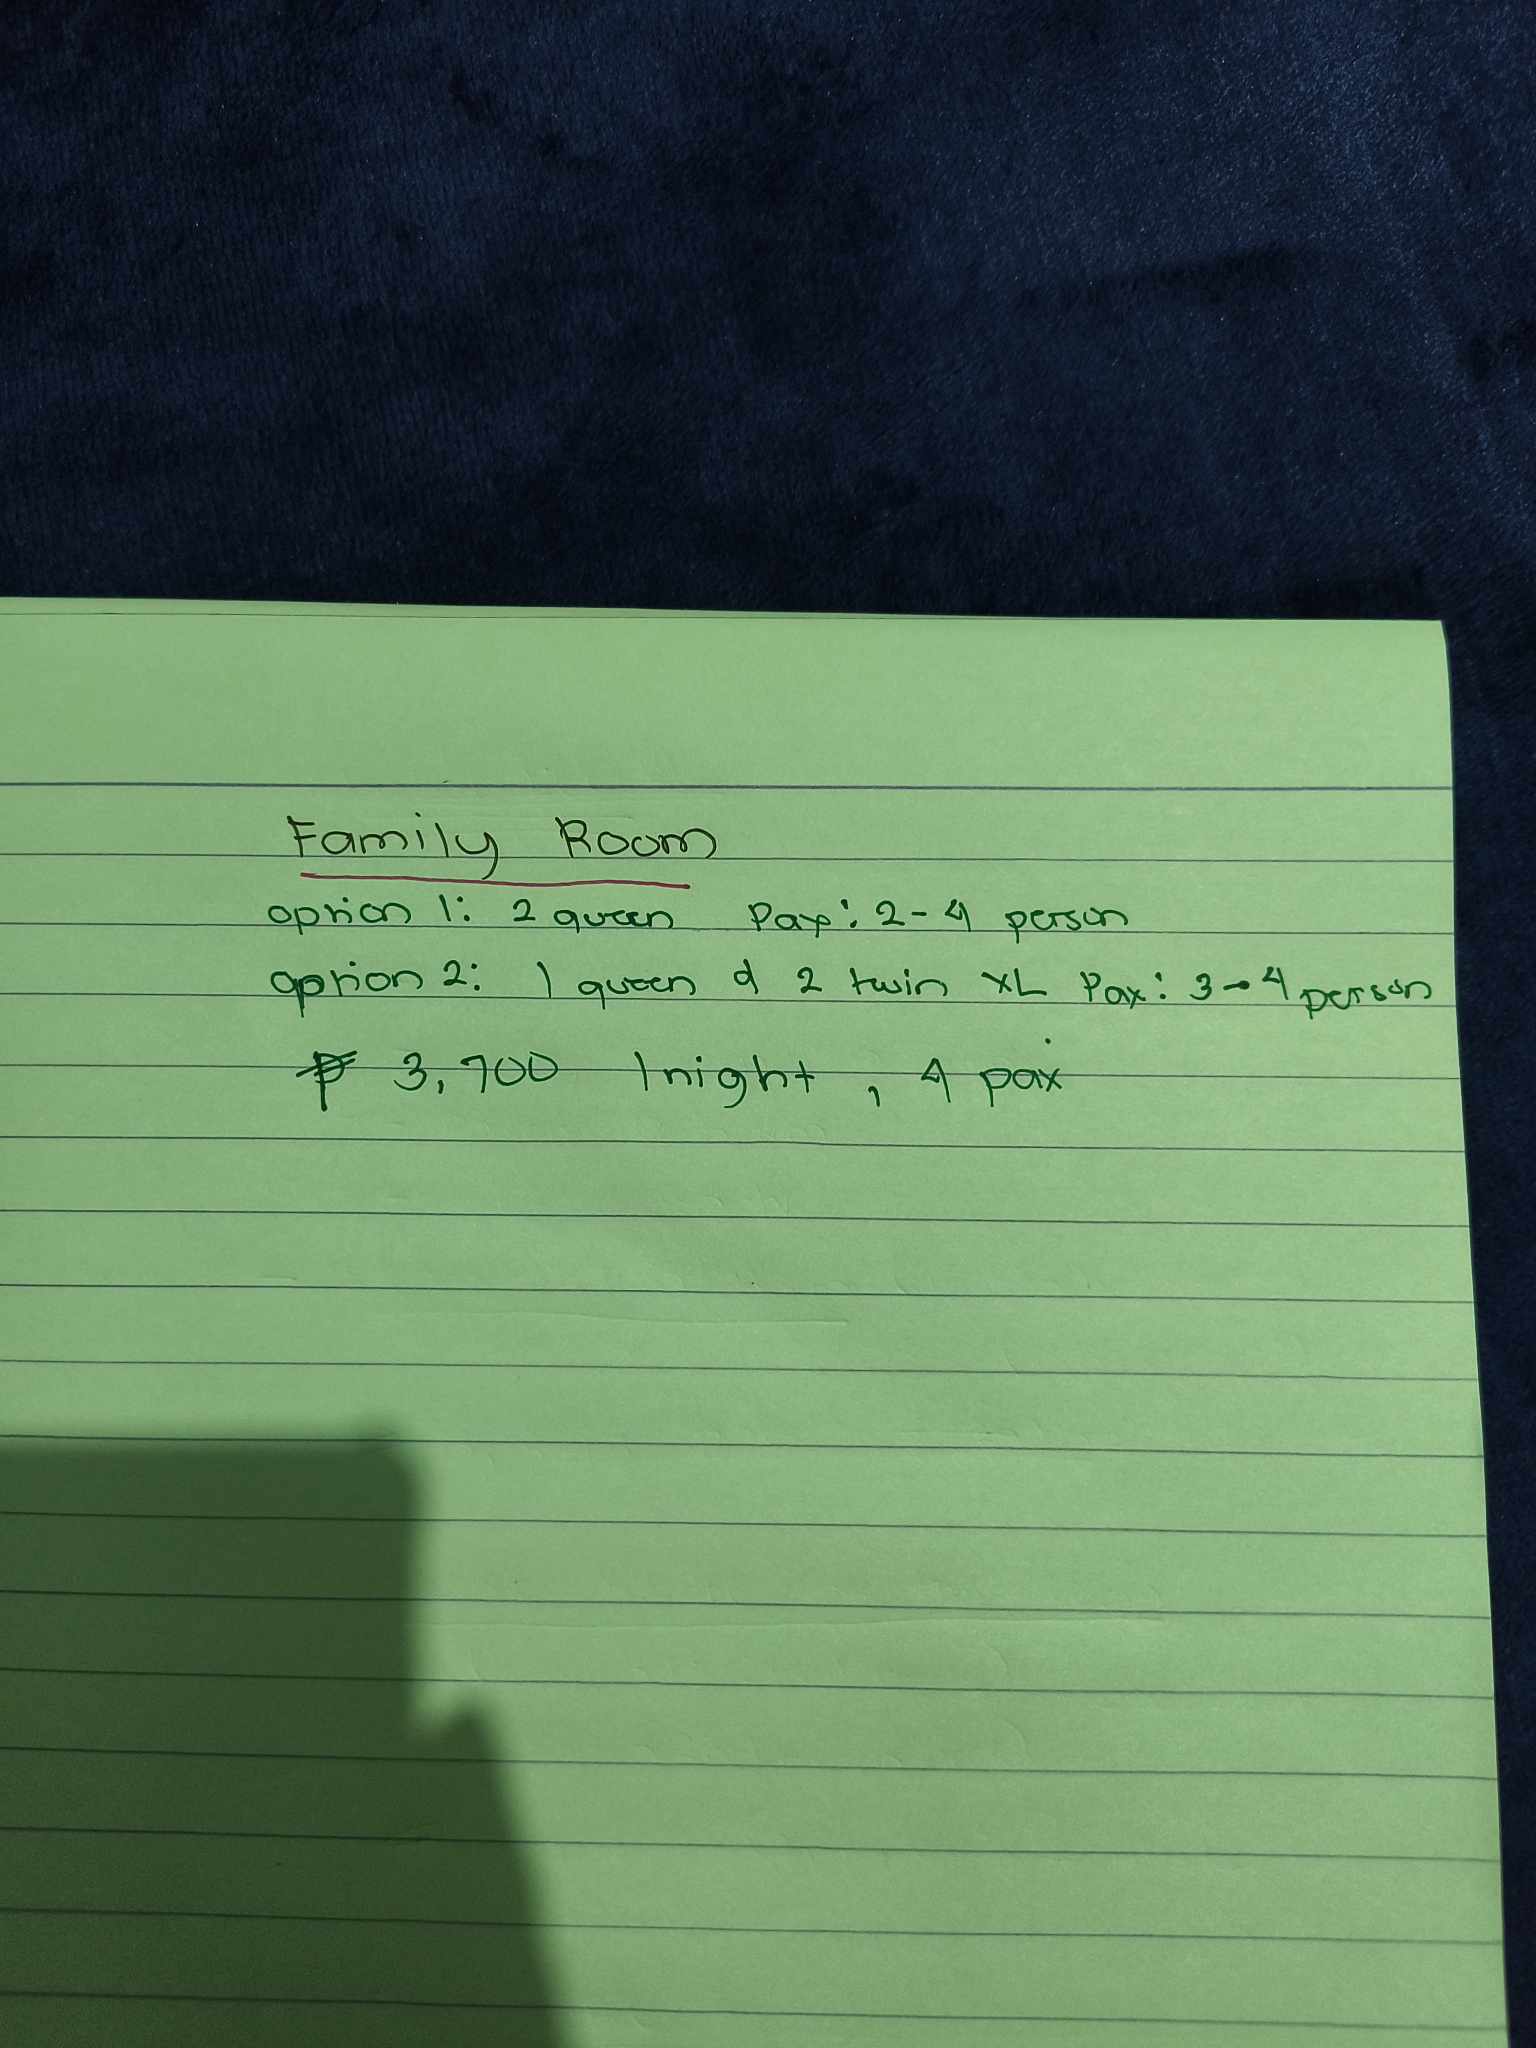 Family Room
option 1: 2 queen Pax: 2-4 person
option 2: 1 queen & 2 twin XL Pax: 3-4 person
₱ 3,700 1night, 4 pax